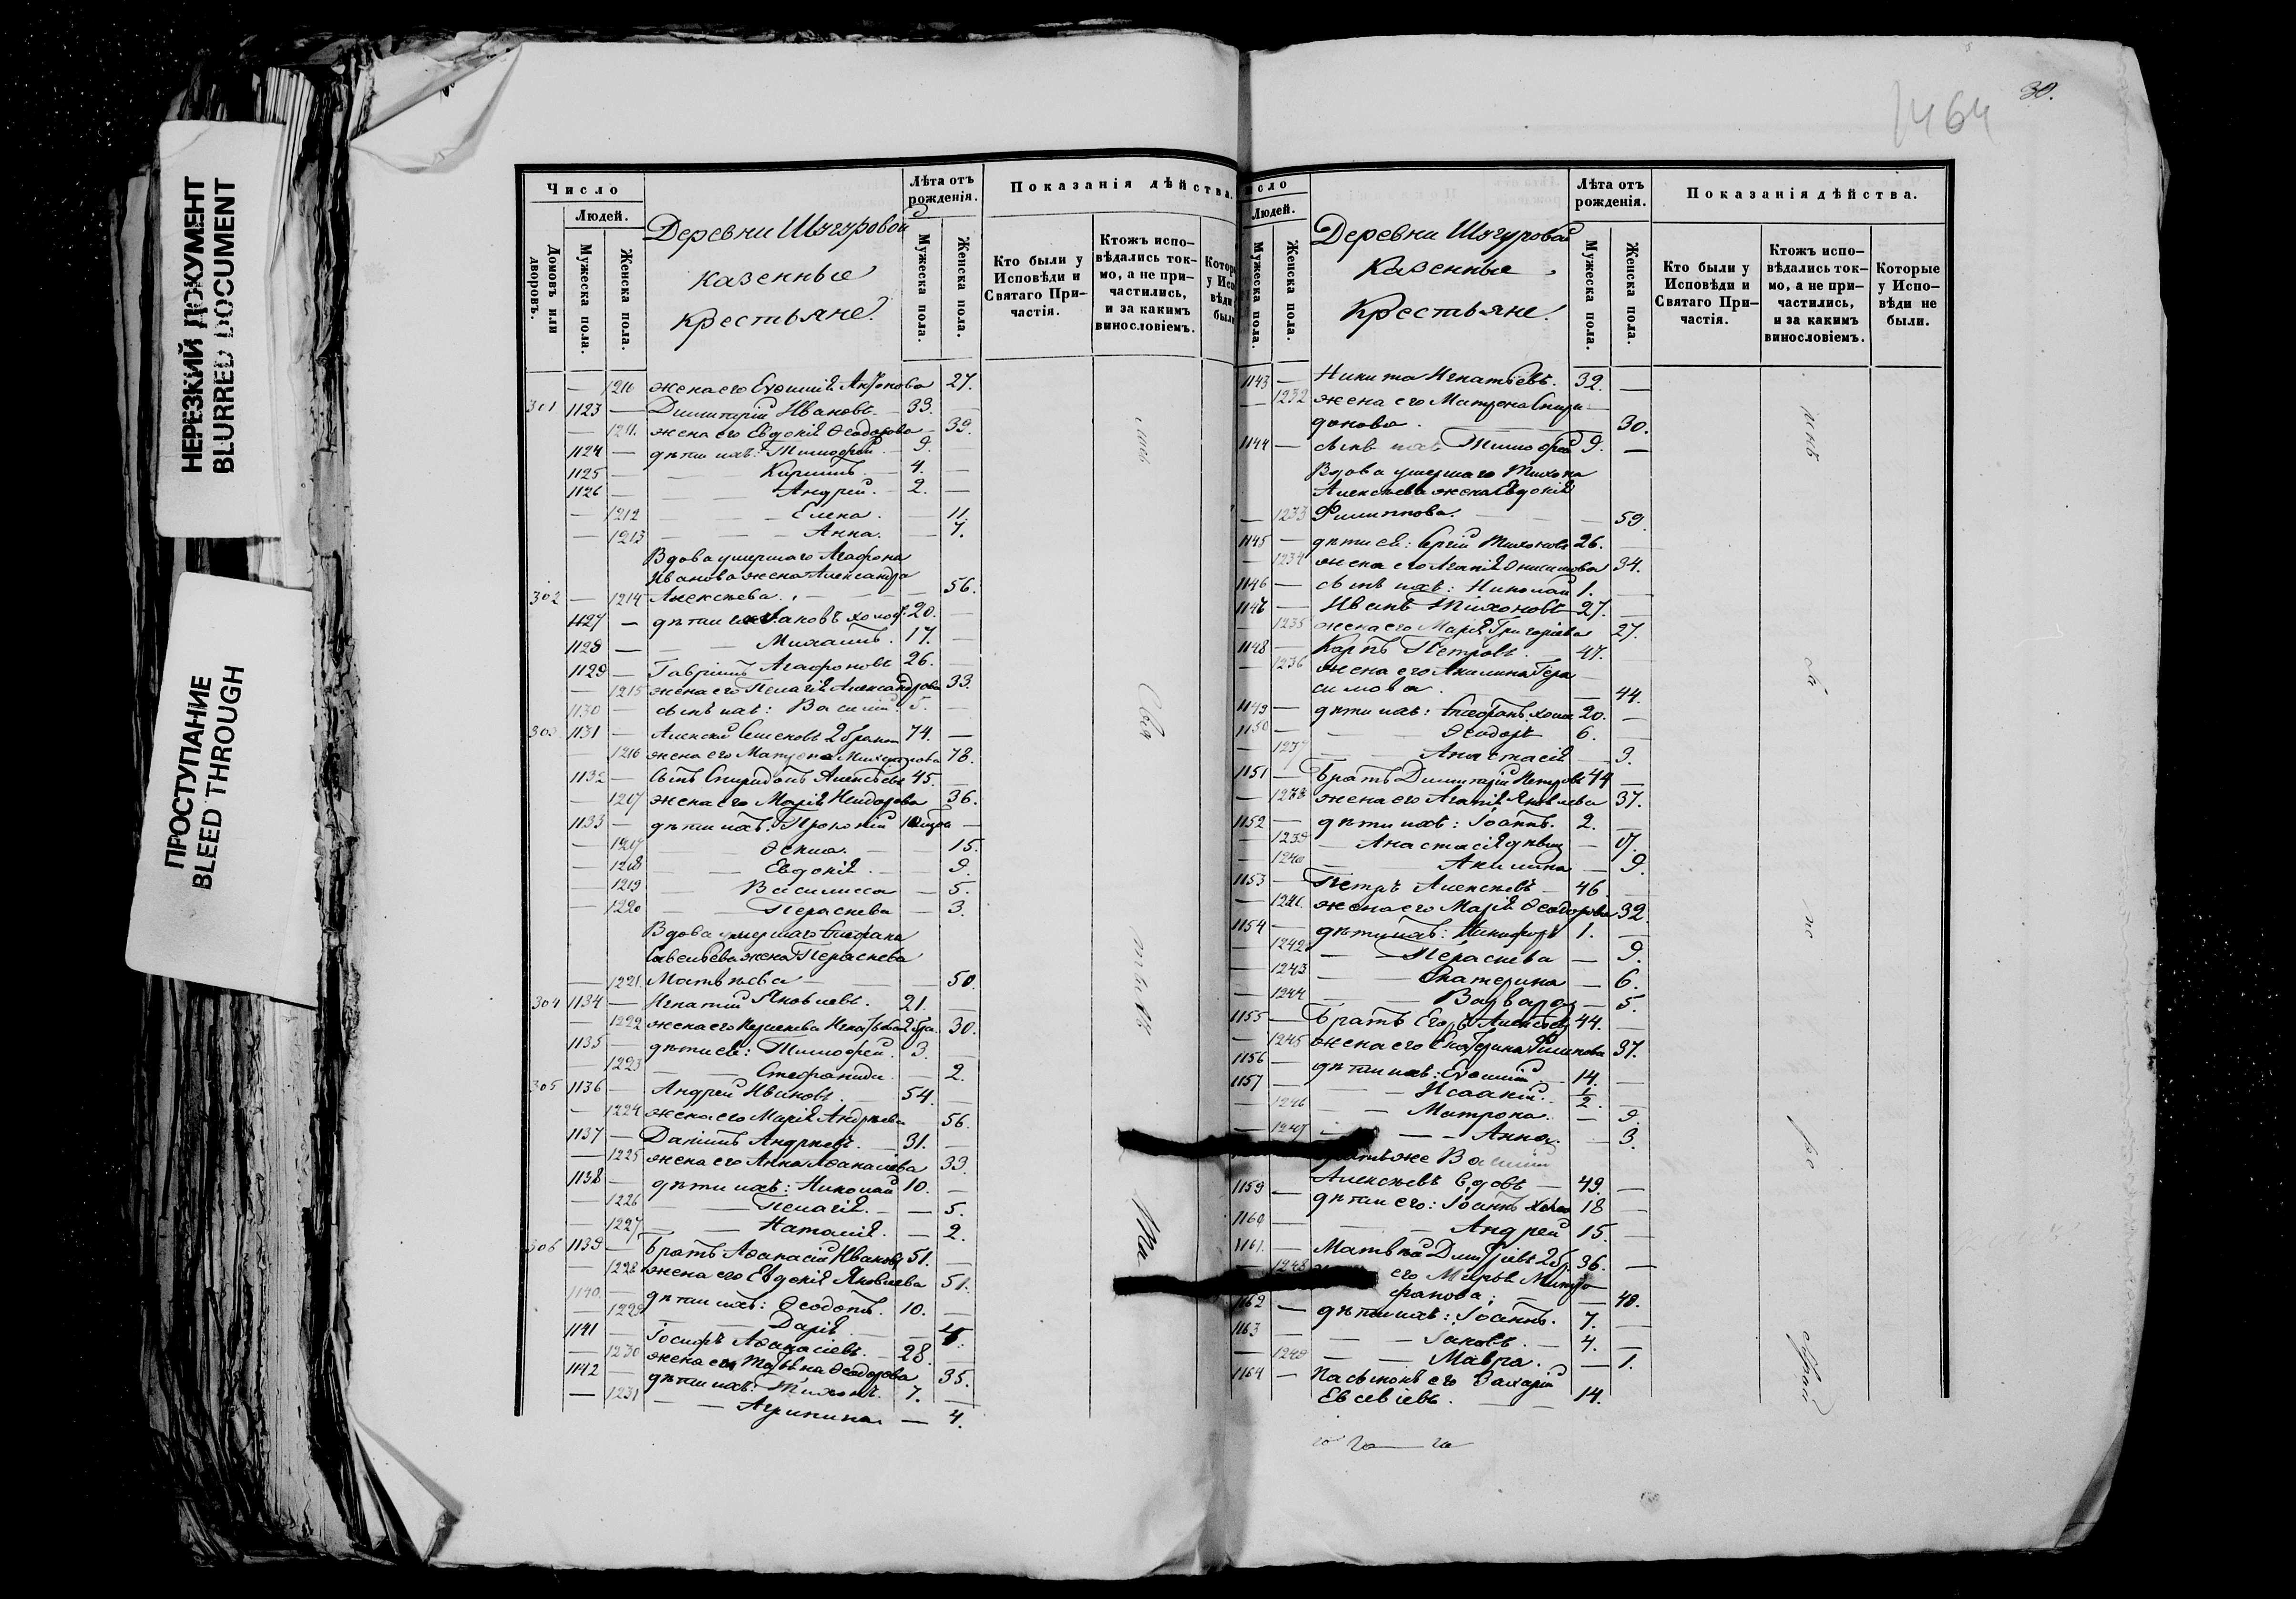 НЕРЕЗКИЙ ДОКУМЕНТ
BLURRED DOCUMENT
ПРОСТУПАНИЕ
BLEED THROUGH
Число
Людей.
Домовъ или дворовъ.
Мужеска пола.
Женска пола.
Деревни Шугуровой
казенные
крестьяне.
Лѣта отъ рожденія.
Мужеска пола.
Женска пола.
Показанія дѣйства.
Кто были у Исповѣди и Святаго Причастія.
Ктожъ исповѣдались токмо, а не причастились, и за какимъ винословіемъ.
1210 жена его Евѳимія 27.
301 1123 — Димитрій Ивановъ. 33.
— 1211. жена его Евдокія Ѳеодорова 39.
1124 — дѣти ихъ: Тимофей 9.
1125 — Кириллъ. 4. —
1126 — Андрей. 2. —
— 1212 Елена. — 11.
— 1213 Анна. — 7.
Вдова умершаго Агафона
Иванова жена Александра
302 — 1214 Алексѣева. 56.
1127 — дѣти Іаковъ холос. 20. —
1128 — Михаилъ. 17. —
1129 — Гавріилъ Агафоновъ 26. —
— 1215 жена его Пелагія Александрова 33.
1130 — сынъ ихъ: Василій 5. —
303 1131 — Алексій Семеновъ 2 бракомъ 74. —
1216 жена его Матрена 78.
1132 — сынъ Спиридонъ Алексѣевъ 45. —
— 1207 жена его Марія 36.
1133 — дѣти ихъ: Прокопій —
— 1217 15.
— 1218 Евдокія. — 9.
— 1219 Василисса — 5.
— 1220 Параскева — 3.
Вдова умершаго Стефана
Савельева жена Параскева
— 1221. Матвѣева 50.
304 1134 — Игнатій Яковлевъ. 21. —
— 1222 жена его Параскева Игнатьева 2 бра. 30.
1135 — дѣти ея: Тимофей. 3. —
1223 Стефанида. — 2.
305 1136 — Андрей Ивановъ. 54. —
— 1224 жена его Марія Андреева 56.
1137 — Даніилъ Андреевъ. 31. —
— 1225 жена его Анна Аѳанасіева 33.
1138 — дѣти ихъ: Николай 10. —
— 1226 Пелагія. — 5.
— 1227 Наталія. — 2.
306 1139 — Братъ Аѳанасій Ивановъ 51. —
— 1228 жена его Евдокія Яковлева 51.
1140. — дѣти ихъ: Ѳеодотъ. 10. —
— 1229 Дарія
1141 — Іосифъ Аѳанасіевъ. 28.
— 1230 жена его Татьяна Ѳеодорова 35.
1142 — дѣти ихъ: Тихонъ. 7. —
— 1231 Агрипина — 4.
1464
30.
Людей.
Мужеска пола.
Женска пола.
Деревни Шугуровой
Казенные
Крестьяне.
Лѣта отъ рожденія.
Мужеска пола.
Женска пола.
Показанія дѣйства.
Кто были у Исповѣди и Святаго Причастія.
Ктожъ исповѣдались токмо, а не причастились, и за какимъ винословіемъ.
Которые у Исповѣди не были.
1143 — Никита Игнатьевъ. 32. —
— 1232 жена его Матрона Спири
донова. 30.
1144 — сынъ ихъ Тимофей 9. —
Вдова умершаго Тихона
Алексѣева жена Евдокія
— 1233 Филиппова. — 59.
1145 — дѣти ея: Сергій Тихоновъ 26. —
— 1234 жена его Агапія Онисимова 34.
1146 — сынъ ихъ: Николай 1. —
1147 — Иванъ Тихоновъ 27. —
— 1235 жена его Марія Григоріева 27.
1148 — Карпъ Петровъ. 47. —
— 1236 жена его Акилина Гера
симова. — 44.
1149 — дѣти ихъ: Стефанъ холос 20. —
1150 — Ѳеодоръ 6. —
— 1237 Анастасія — 3.
1151 — Братъ Димитрій Петровъ 44 —
— 1238 жена его Агапія Яковлева 37.
1152 — дѣти ихъ: Іоаннъ. 2. —
— 1239 Анастасія дѣвица —
— 1240 Акилина — 9.
1153 — Петръ Алексѣевъ 46 —
— 1241. жена его Марія Ѳеодорова 32.
1154 — дѣти ихъ: Никифоръ 1. —
— 1242 Параскева — 9.
— 1243 Екатерина — 6.
— 1244 Варвара — 5.
1155 — Братъ Егоръ Алексѣевъ 44. —
— 1245 жена его Екатерина Филипова 37.
1156 — дѣти ихъ: Евѳимій 14. —
1157 — Исаакій. ½. —
— 1246 Матрона. — 9.
— 1247 Анна. — 3.
Василій
Алексѣевъ вдовъ 49. —
1159 — дѣти его: Іоаннъ холос 18 —
1160 — Андрей 15. —
1161. — Матвѣй Димитріевъ 2 бр. 36. —
— 1248 его Марѳа Митро
фанова. — 40.
1162 — дѣти ихъ: Іоаннъ. 7. —
1163 — Іаковъ. 4. —
— 1249 Мавра. — 1.
1164 — Пасынокъ его Захарій
Евсевіевъ. 14.